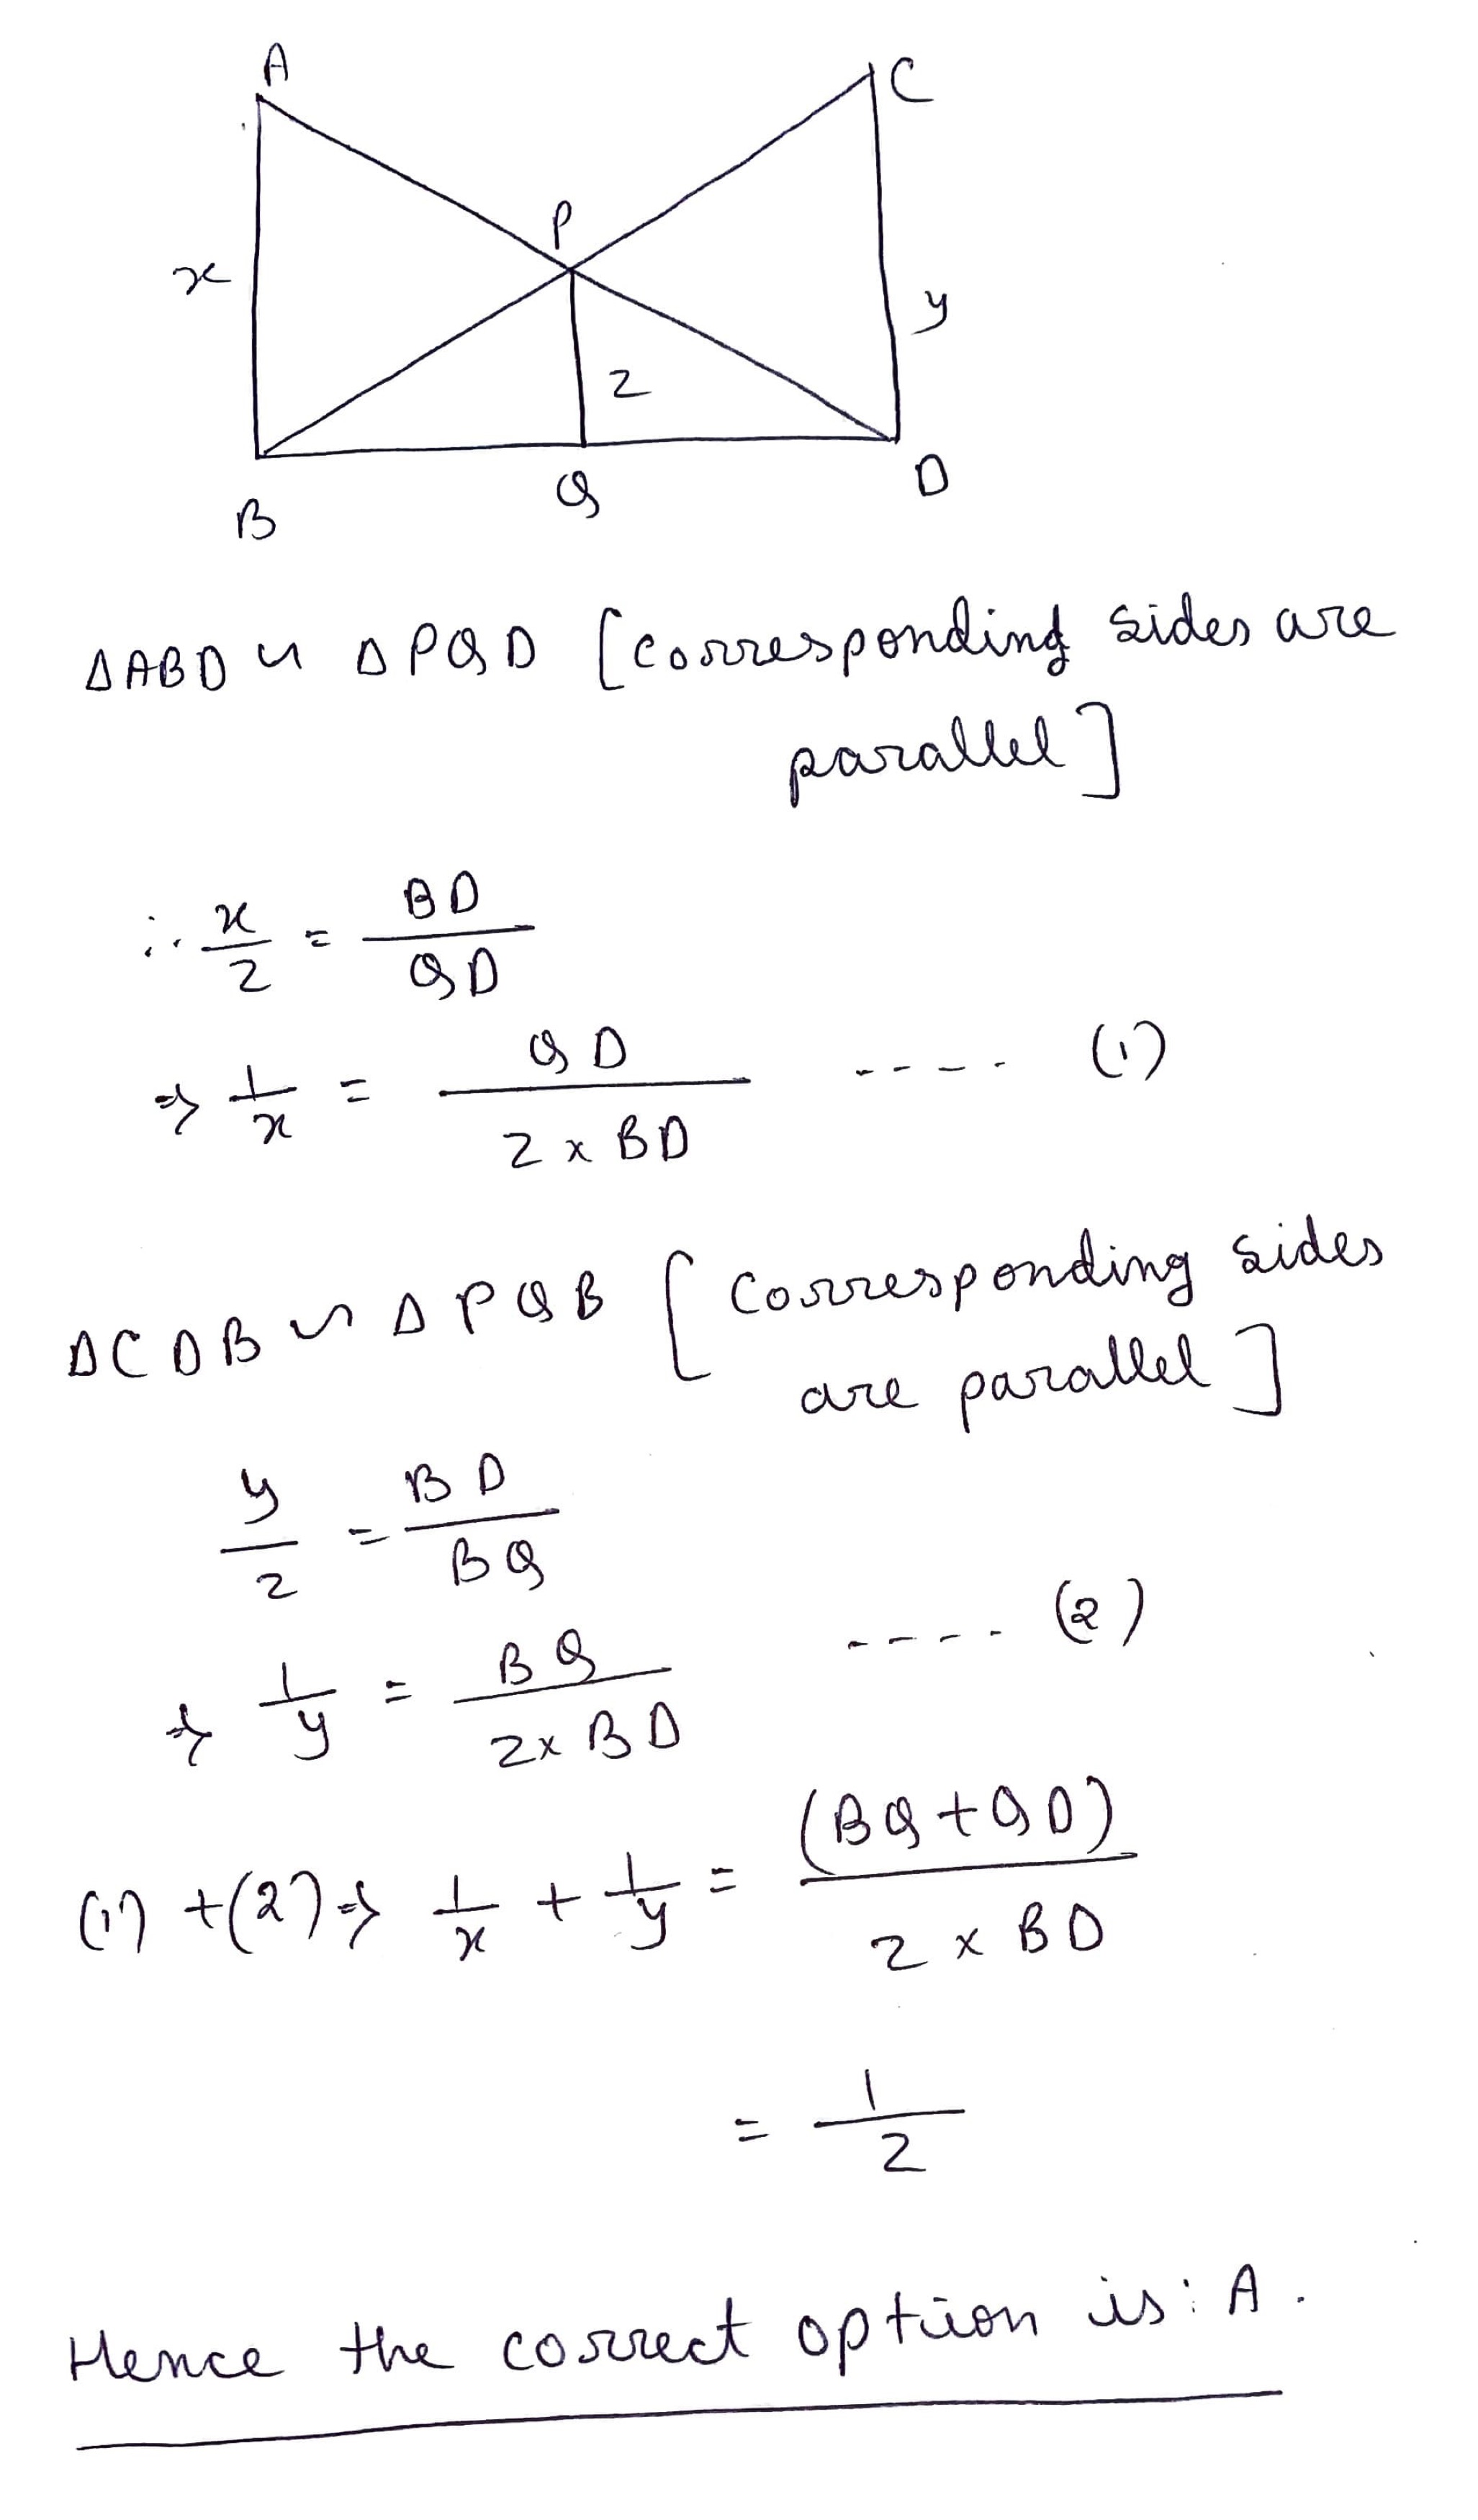 A
C
P
x
y
z
B
Q
D
ΔABD ∽ ΔPQD [corresponding sides are
parallel]
∴ x/z = BD/QD
⇒ 1/x = QD/(z × BD) ----- (1)
ΔCDB ∽ ΔPQB [corresponding sides
are parallel]
y/z = BD/BQ
⇒ 1/y = BQ/(z × BD) ----- (2)
(1) + (2) ⇒ 1/x + 1/y = (BQ + QD)/(z × BD)
= 1/z
Hence the correct option is: A.